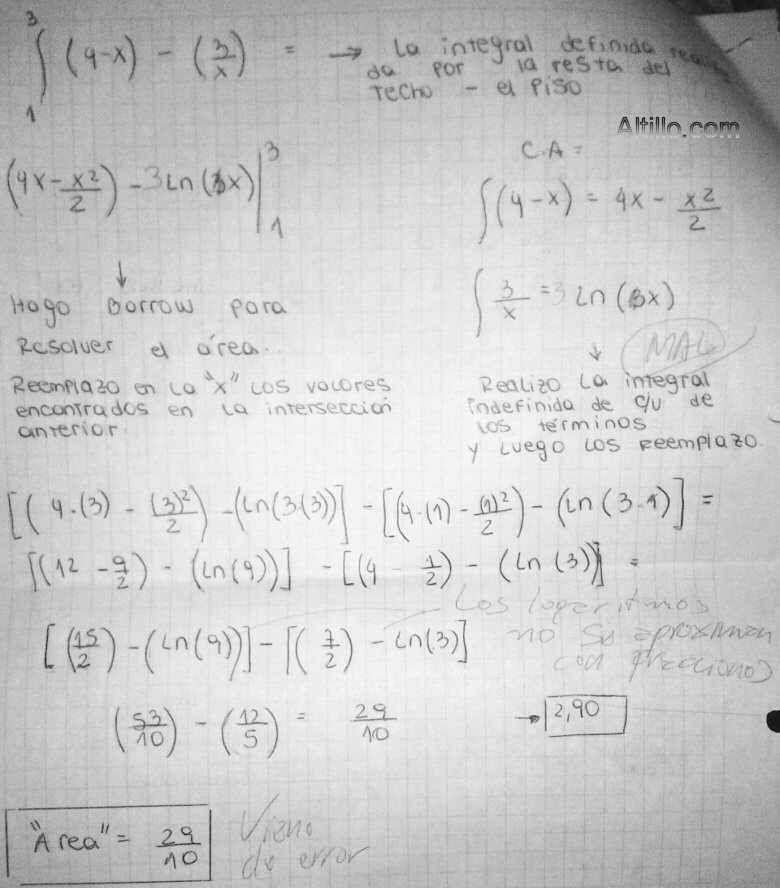 ∫₁³ (4-x) - (3/x) = → La integral definida
da por la resta del
Techo - el Piso
Altillo.com
C.A =
(4x - x²/2) - 3 Ln(3x) |₁³
∫(4-x) = 4x - x²/2
∫ 3/x = 3 Ln(3x)
MAL
↓
Hago Borrow para
Resolver el área.
Reemplazo en La "x" Los valores
encontrados en La intersección
anterior.
↓
Realizo La integral
indefinida de c/u de
Los términos
y Luego Los Reemplazo.
[(4.(3) - (3)²/2) - (Ln(3.(3))] - [(4.(1) - (1)²/2) - (Ln(3.1)] =
[(12 - 9/2) - (Ln(9))] - [(4 - 1/2) - (Ln(3))] =
[(15/2) - (Ln(9))] - [(7/2) - Ln(3)]
Los logaritmos
no se aproximan
con fracciones
(53/10) - (12/5) = 29/10 → 2,90
"Area" = 29/10
Viene
de error